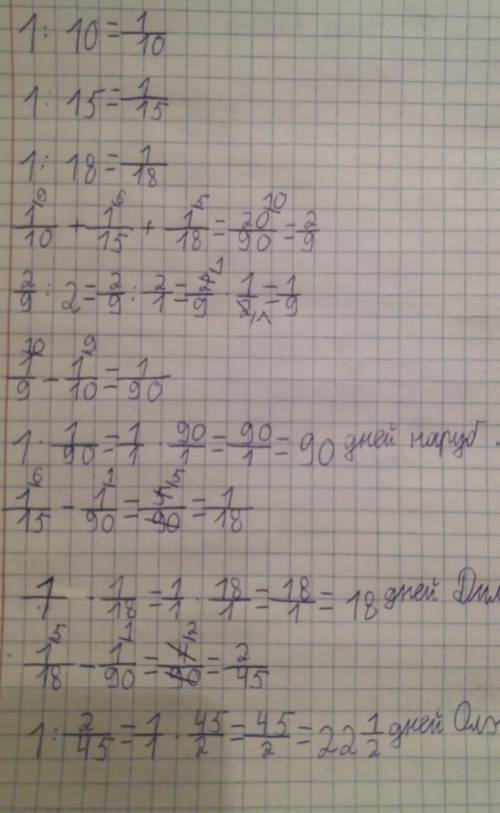 1 : 10 = 1/10
1 : 15 = 1/15
1 : 18 = 1/18
1/10 ⁹ + 1/15 ⁶ + 1/18 ⁵ = 20/90 ¹⁰ = 2/9
2/9 : 2 = 2/9 : 2/1 = 2/9 ¹ · 1/2 ₁ = 1/9
1/9 ¹⁰ - 1/10 ⁹ = 1/90
1 · 1/90 = 1/1 · 90/1 = 90/1 = 90 дней наруб
1/15 ⁶ - 1/90 ¹ = /90 ⁵ = 1/18
1/1 · 1/18 = 1/1 · 18/1 = 18/1 = 18 дней Дил
1/18 ⁵ - 1/90 ¹ = /90 ² = 2/45
1 : 2/45 = 1/1 45/2 = 45/2 = 22 1/2 дней Олж